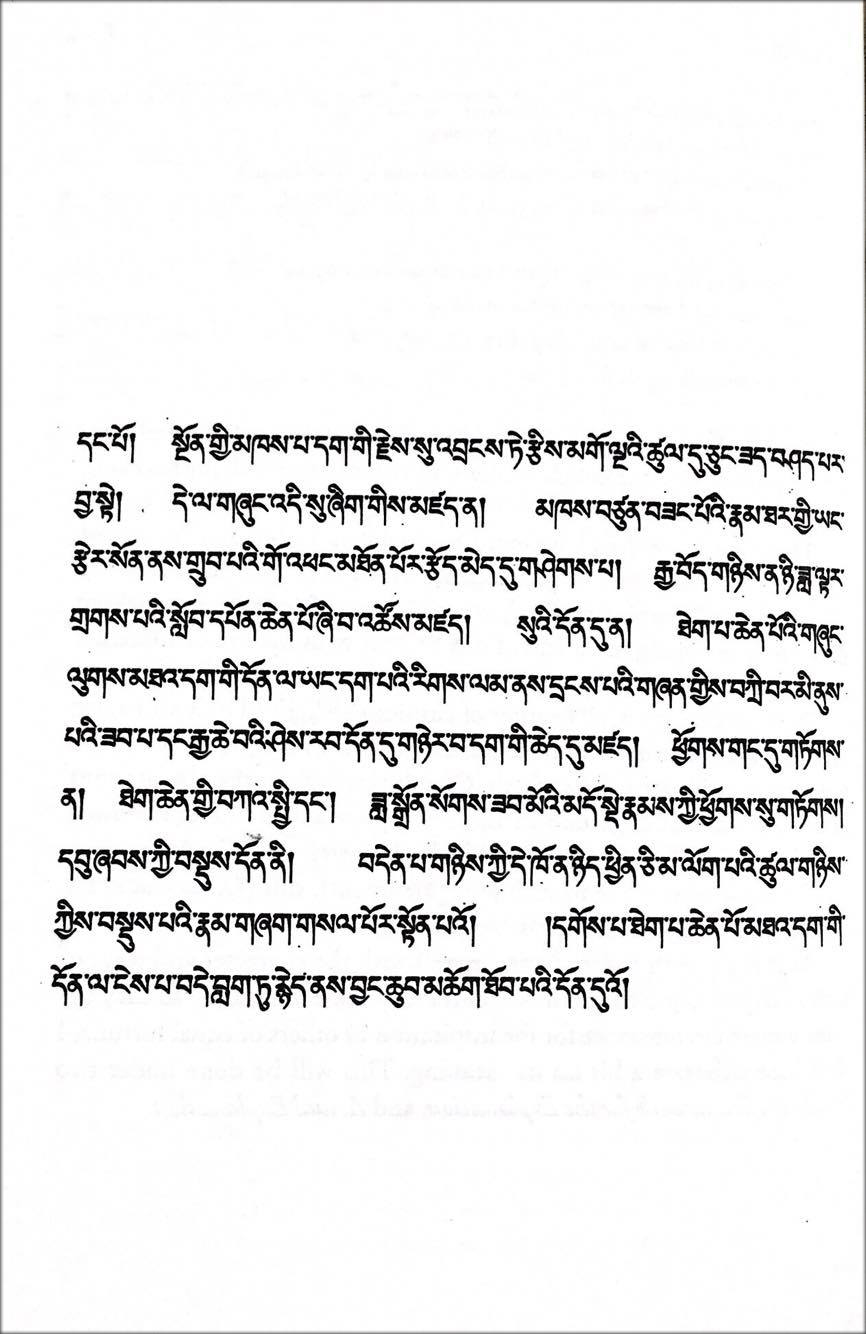 དང་པོ། སྔོན་གྱི་མཁས་པ་དག་གི་རྗེས་སུ་འབྲངས་ཏེ་རྩིས་མགོ་ལྔའི་ཚུལ་དུ་ཅུང་ཟད་བཤད་པར་
བྱ་སྟེ། དེ་ལ་གཞུང་འདི་སུ་ཞིག་གིས་མཛད་ན། མཁས་བཙུན་བཟང་པོའི་རྣམ་ཐར་གྱི་ཡང་
རྩེར་སོན་ནས་གྲུབ་པའི་གོ་འཕང་མཐོན་པོར་རྩོད་མེད་དུ་གཤེགས་པ། རྒྱ་བོད་གཉིས་ན་ཉི་ཟླ་ལྟར་
གྲགས་པའི་སློབ་དཔོན་ཆེན་པོ་ཞི་བ་འཚོས་མཛད། སུའི་དོན་དུ་ན། ཐེག་པ་ཆེན་པོའི་གཞུང་
ལུགས་མཐའ་དག་གི་དོན་ལ་ཡང་དག་པའི་རིགས་ལམ་ནས་དྲངས་པའི་གཞན་གྱིས་བཀྲི་བར་མི་ནུས་
པའི་ཟབ་པ་དང་རྒྱ་ཆེ་བའི་ཤེས་རབ་དོན་དུ་གཉེར་བ་དག་གི་ཆེད་དུ་མཛད། ཕྱོགས་གང་དུ་གཏོགས་
ན། ཐེག་ཆེན་གྱི་བཀའ་སྤྱི་དང་། ཟླ་སྒྲོན་སོགས་ཟབ་མོའི་མདོ་སྡེ་རྣམས་ཀྱི་ཕྱོགས་སུ་གཏོགས།
དབུ་ཞབས་ཀྱི་བསྡུས་དོན་ནི། བདེན་པ་གཉིས་ཀྱི་དེ་ཁོ་ན་ཉིད་ཕྱིན་ཅི་མ་ལོག་པའི་ཚུལ་གཉིས་
ཀྱིས་བསྡུས་པའི་རྣམ་གཞག་གསལ་པོར་སྟོན་པའོ། །དགོས་པ་ཐེག་པ་ཆེན་པོ་མཐའ་དག་གི་
དོན་ལ་ངེས་པ་བདེ་བླག་ཏུ་རྙེད་ནས་བྱང་ཆུབ་མཆོག་ཐོབ་པའི་དོན་དུའོ།